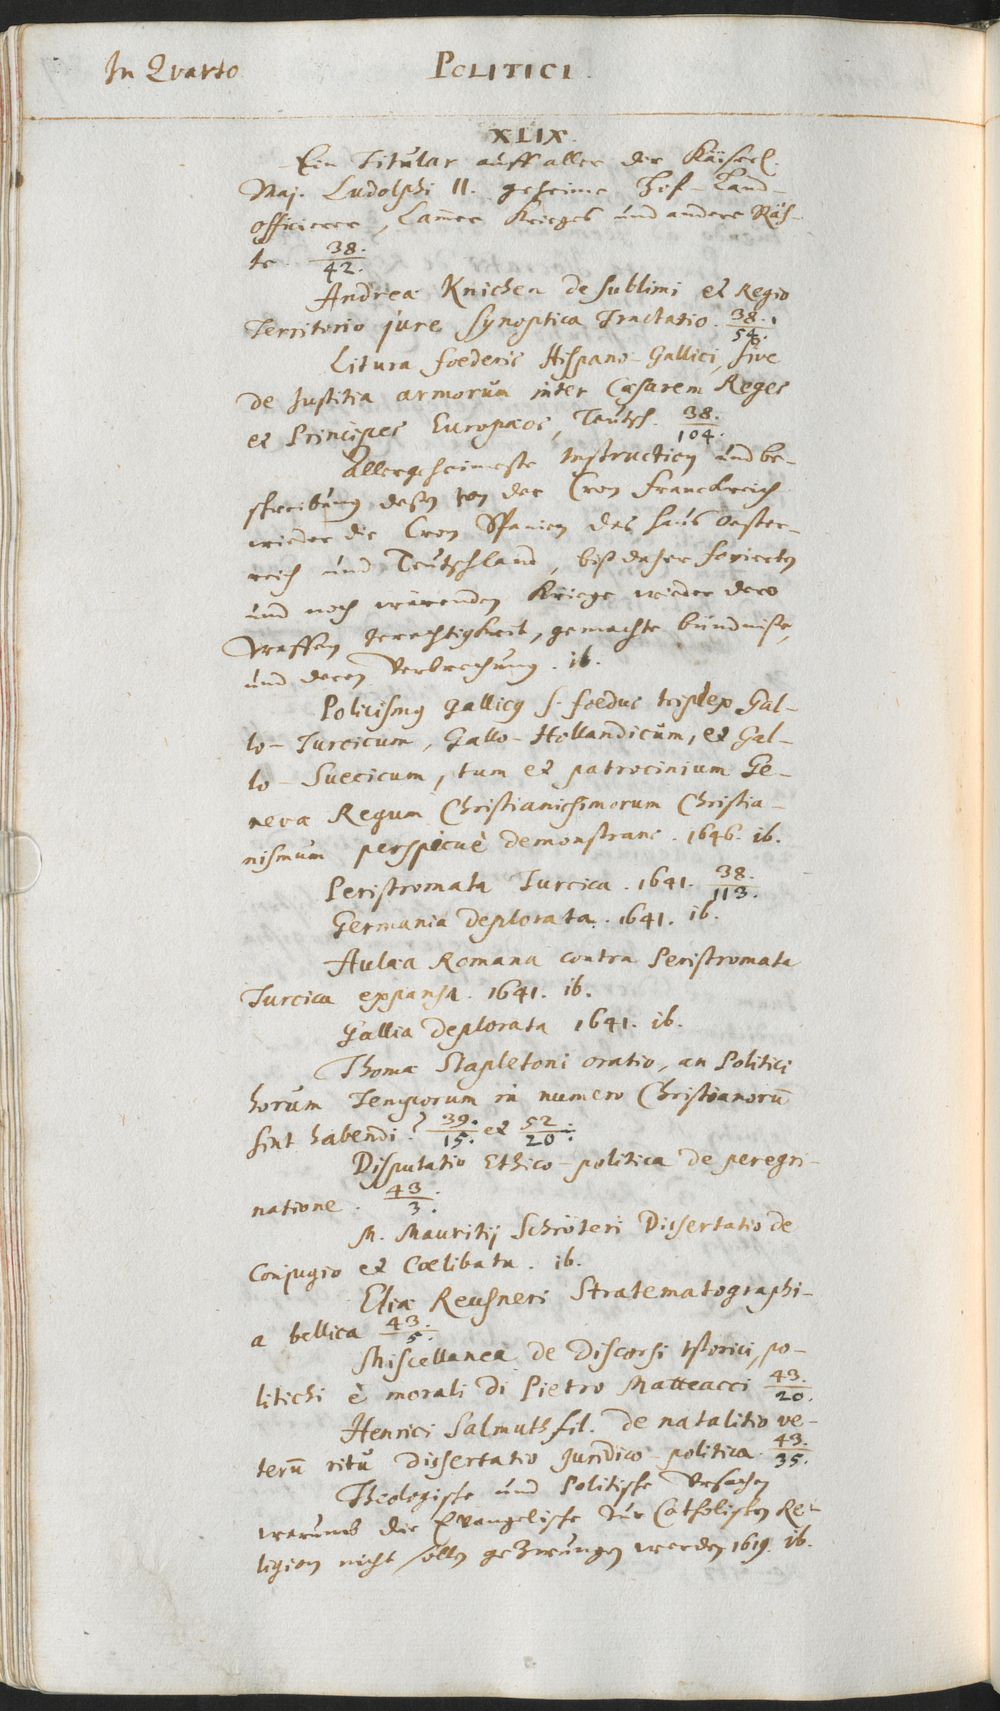 In Qvarto
POLITICI.
XLIX.
Ein Titular auff aller der Käiserl.
Maj. Rudolphi II. geheime Hof-Land-
officierer, Camer Krieges und andere Räh-
te. 38./42.
Andreæ Knichen de sublimi et Regio
Territorio jure synoptica Tractatio. 38./54.
Litura foederis Hispano-Gallici, sive
de Justitia armorum inter Cæsarem Reges
et Principes Europæos, Teutsch. 38./104.
Allergeheimeste Instruction und be-
schreibung deßen von der Cron Franckreich
wieder die Cron Spanien das Haus Oester-
reich und Teutschland, biß daher
und noch wärenden Kriege wieder dero
Waffen Gerechtigkeit, gemachte bündniße,
und deren Verbrechung. ib.
Policismus Gallicus s. foedus triplex Gal-
lo-Turcicum, Gallo-Hollandicum, et Gal-
lo-Suecicum, tum et patrocinium Ge-
nevæ Regum Christianissimorum Christia-
nismum perspicuè demonstrans. 1646. ib.
Peristromata Turcica. 1641. 38./113.
Germania deplorata. 1641. ib.
Aulæa Romana contra Peristromata
Turcica expansa. 1641. ib.
Gallia deplorata 1641. ib.
Thomæ Stapletoni oratio, an Politici
horum Temporum in numero Christianorū
sint habendi? 39./15. et 52/20.
Disputatio Ethico-politica de peregri-
natione. 43/3.
M. Mauritij Schröteri Dissertatio de
Conjugio et Coelibatu. ib.
Eliæ Reusneri Stratematographi-
a bellica 43./5.
Miscellanea de Discorsi istorici, po-
litichi è morali di Pietro Matteacci 43./20.
Henrici Salmuth fil. de natalitio ve-
terū ritu dissertatio juridico-politica. 43./35.
Theologische und Politische Ursachen
warumb die Evangelische zur Catholischen Re-
ligion nicht sollen gezwungen werden 1619. ib.